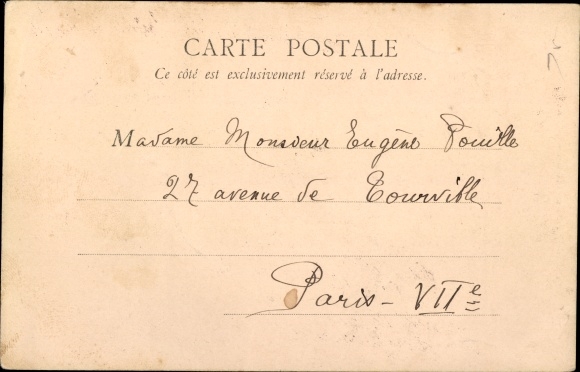 CARTE POSTALE
Ce côté est exclusivement réservé à l'adresse.
Madame Monsieur Eugène
27 avenue de Tourville
Paris - VIIe